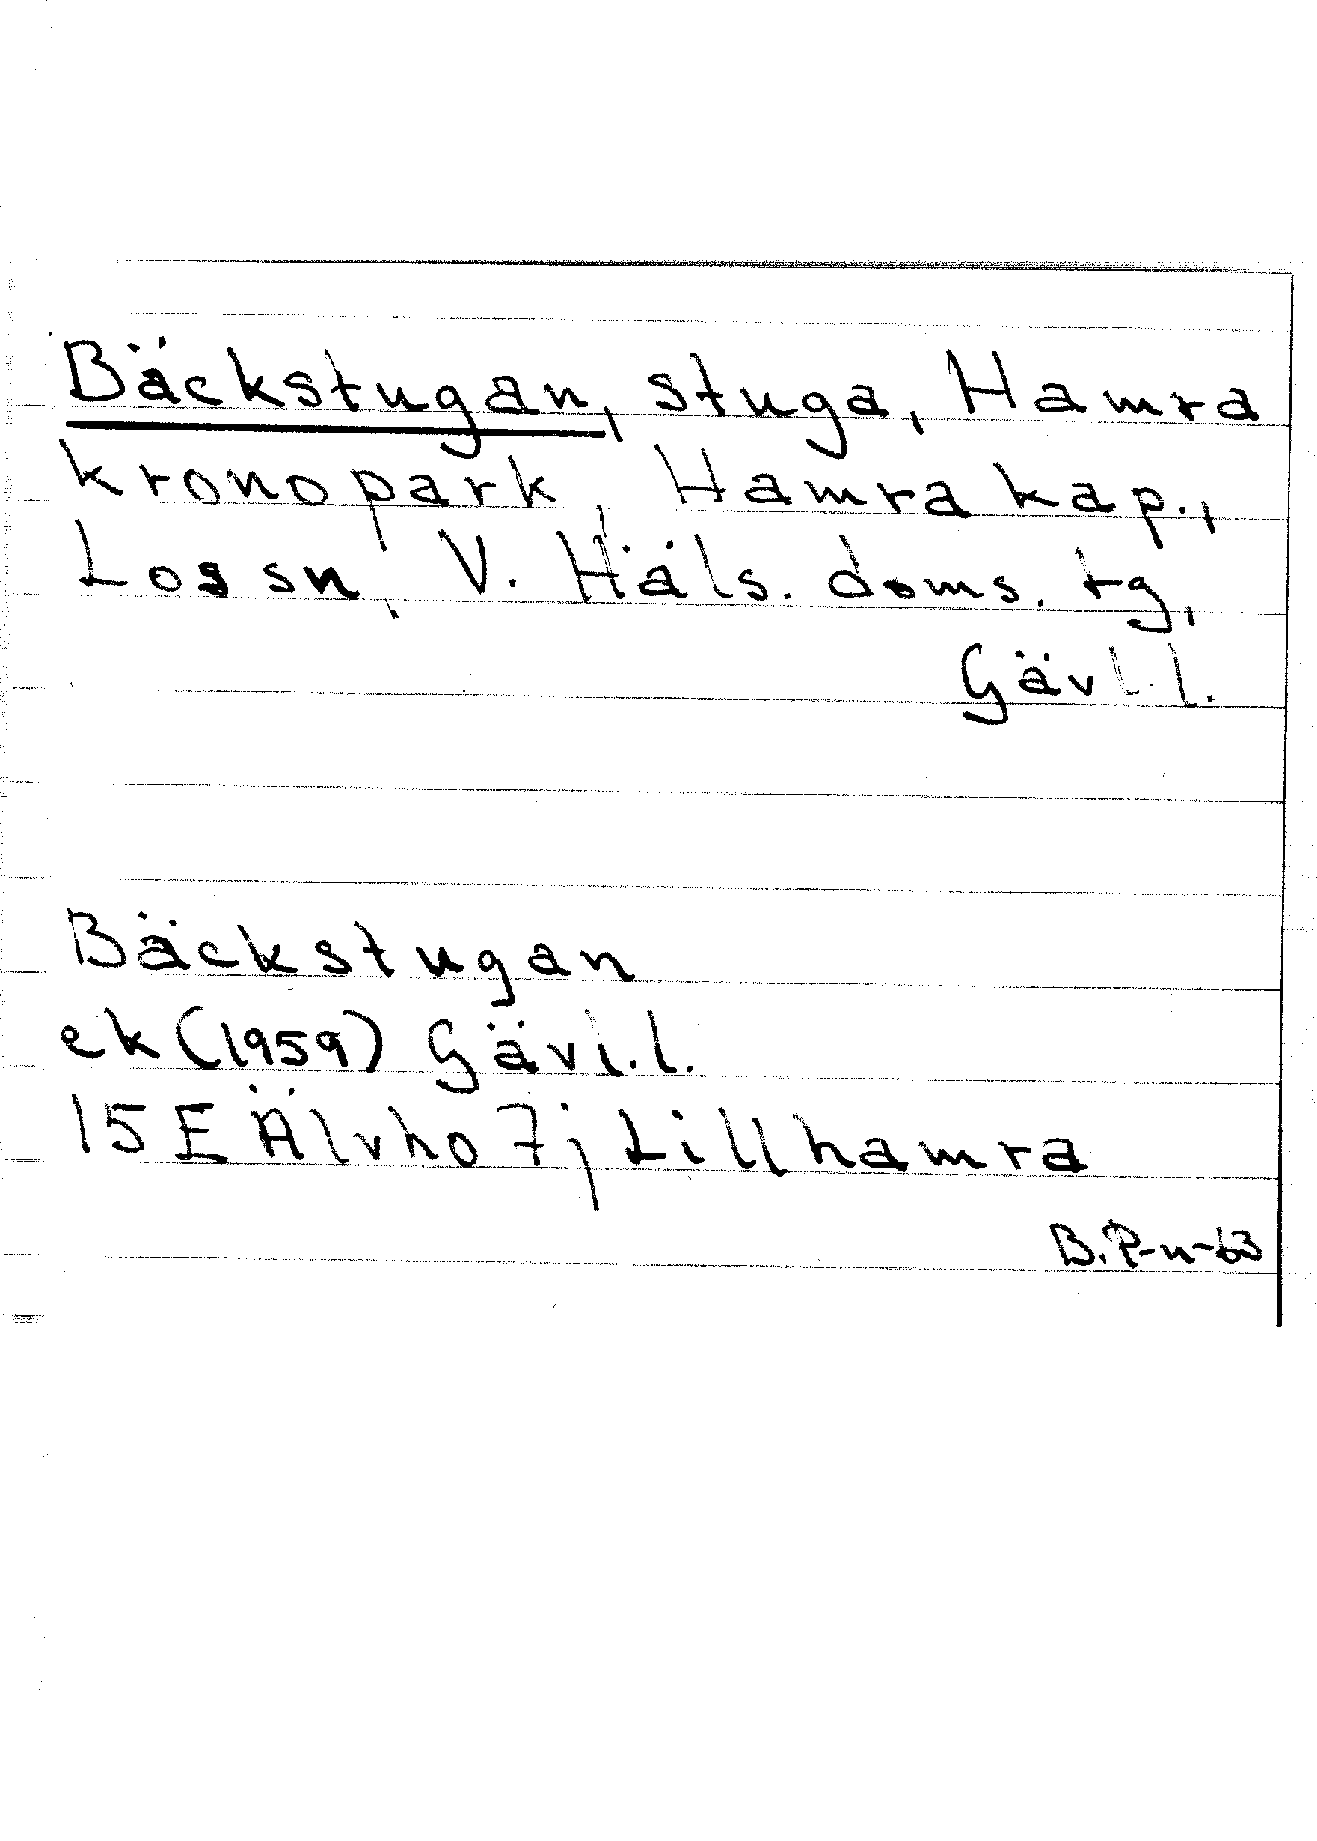 Bäckstugan, stuga, Hamra
kronopark, Hamra kap.,
Los sn, V. Häls. doms. tg,
Gävl. l.
Bäckstugan
ek (1959) Gävl. l.
15E Älvho 7j Lillhamra
B. P-n-63